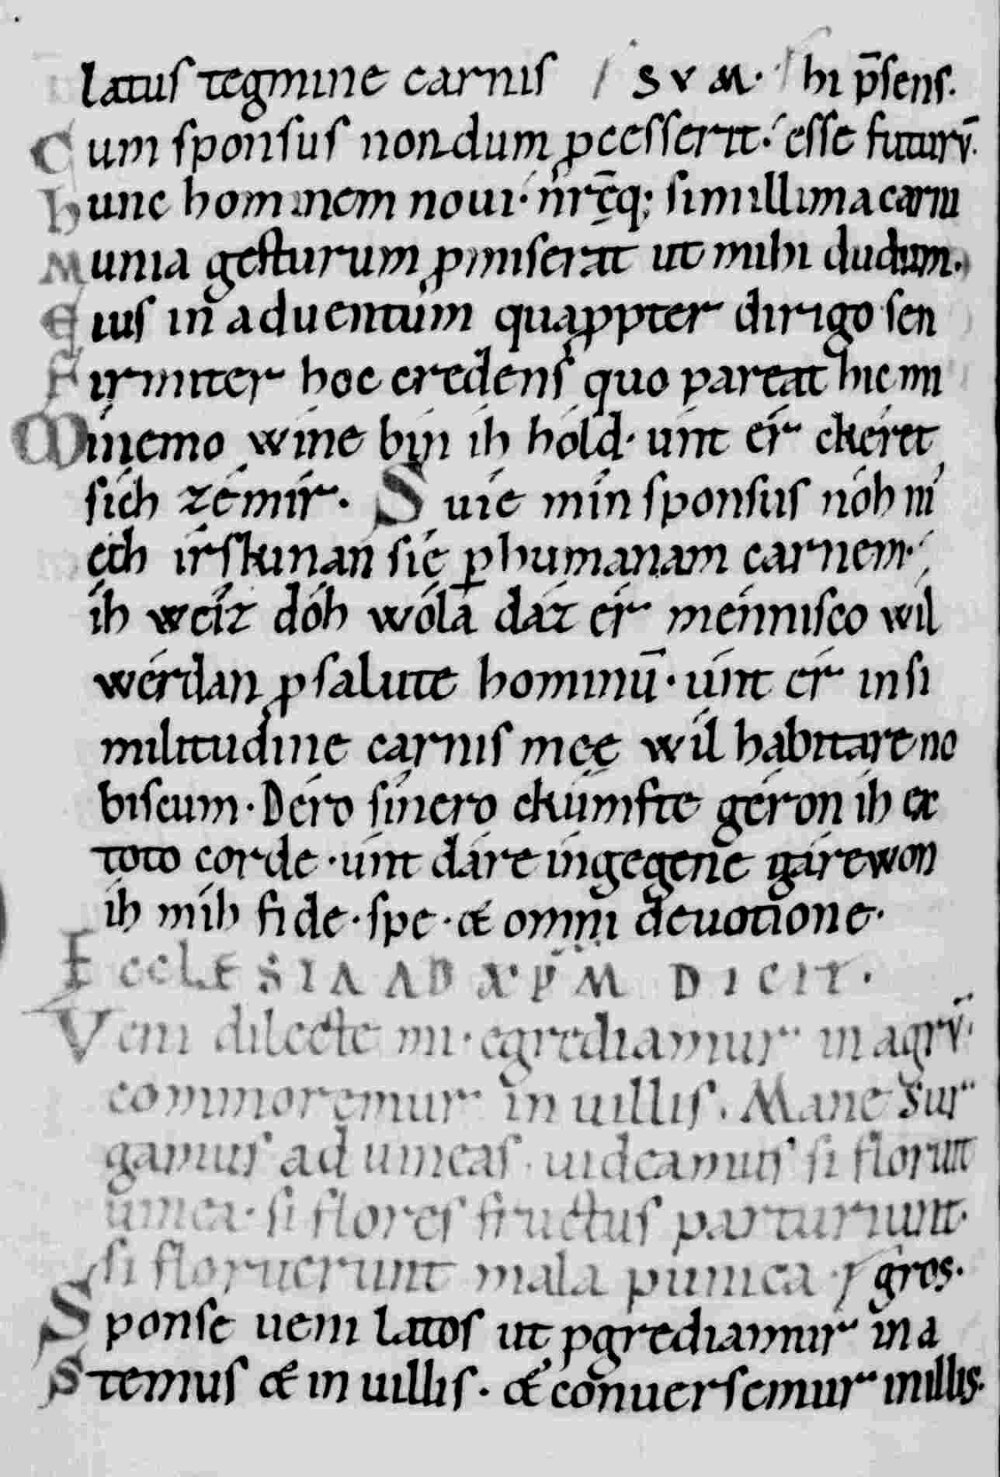 latus tegmine carnis / SVM · / hi p̄sens.
Cum sponsus nondum ꝓcesserit · esse futurv̄.
Hunc hominem noui · nr̄ę̄q; simillima carni
Munia gesturum ꝓmiserat ut mihi dudum.
Eius in aduentum quaꝓpter dirigo sen
Firmiter hoc credens quo pareat hic mi
Mínemo wíne bin íh hóld · únt ér ckéret
sích zémír. Suíe mín sponsus nóh ni
éth irskínan síe ꝑ humanam carnem ·
íh wéiz dóh wóla dáz ér ménnisco wil
wérdan ꝓ salute hominū · únt ér in si
militudine carnis meę wíl habitare no
biscum · Déro sínero ckúmfte géron íh ex
toto corde · únt dáre ingegene gárewon
íh míh fide · spe · & omni deuotione ·
ECCLESIA AD XP̄M DICIT.
Veni dilecte mi · egrediamur in agrv̄ ·
commoremur in uillis. Mane sur
gamus ad uineas. uideamus si floruit
uinea · si flores fructus parturiunt.
si floruerunt mala punica · / gros.
Sponse ueni latos ut ꝑgrediamur in a
Stemus & in uillis. & conuersemur in illis.